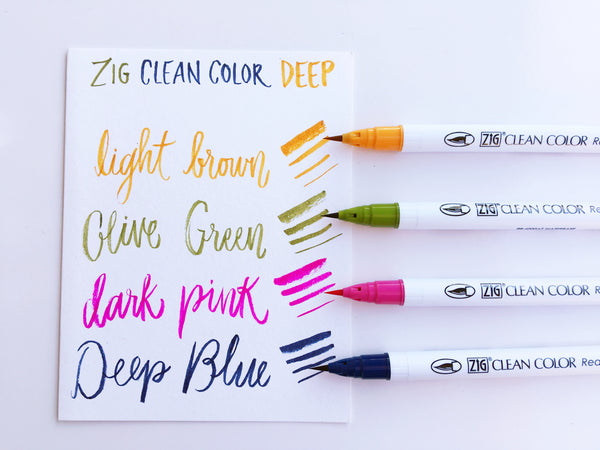 ZIG CLEAN COLOR DEEP
light brown
Olive Green
dark pink
Deep Blue
ZIG® CLEAN COLOR Re
ZIG® CLEAN COLOR Re
ZIG® CLEAN COLOR Re
ZIG® CLEAN COLOR Rea